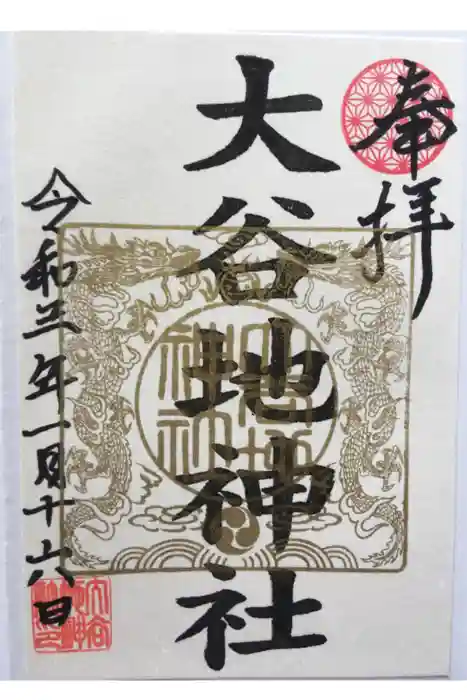 奉拝
大谷地神社
大谷地
神社
令和三年一月十六日